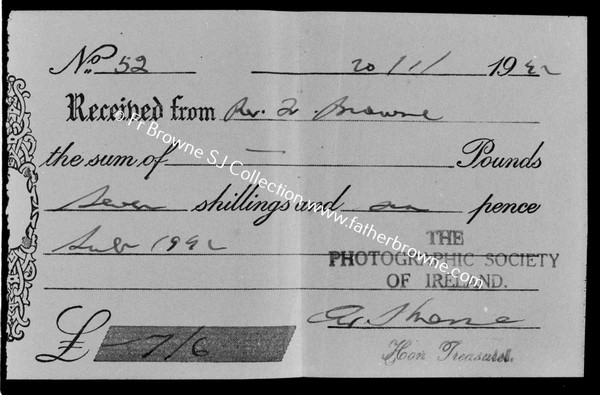 No. 52 20/1/1942
Received from Rev. Fr. Browne
the sum of — Pounds
Seven shillings and six pence
Sub 1942
THE
PHOTOGRAPHIC SOCIETY
OF IRELAND.
£ 7/6
Hon Treasurer.
© Fr Browne SJ Collection, www.fatherbrowne.com